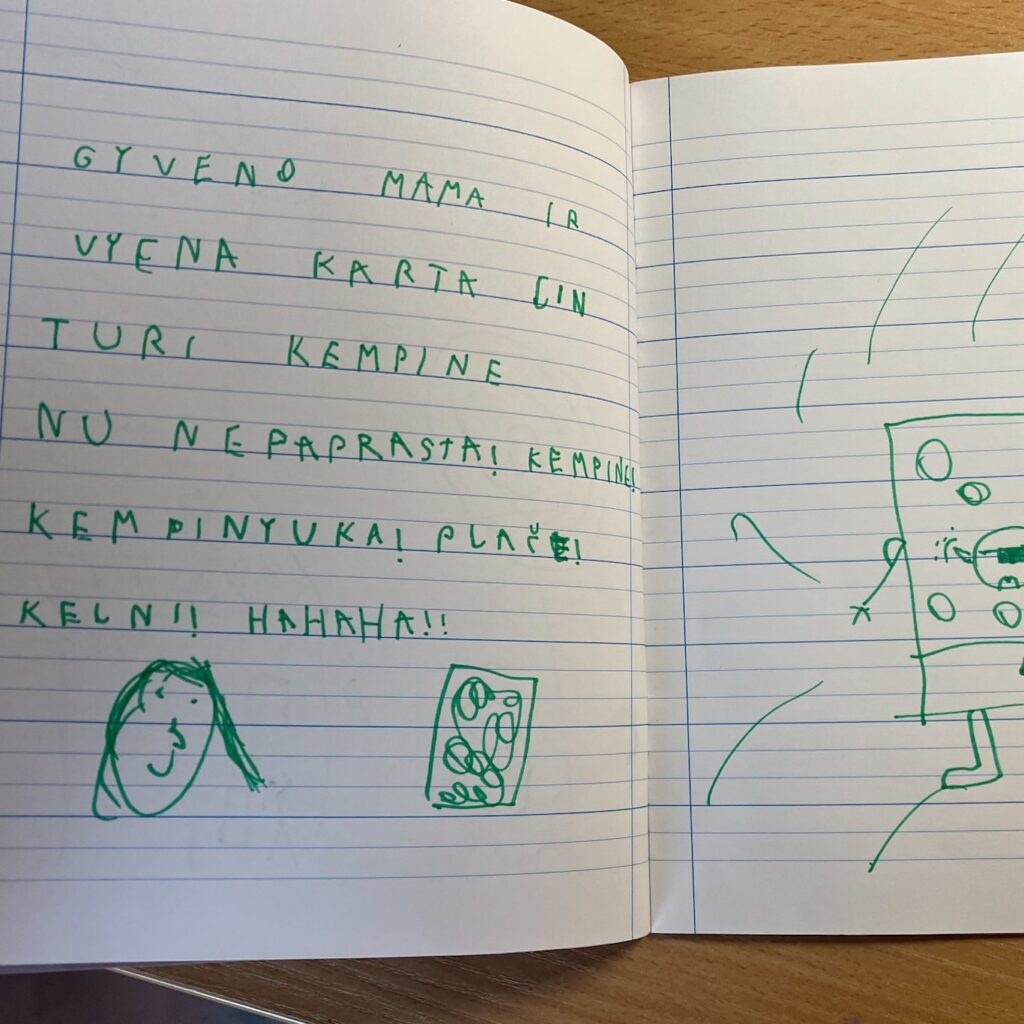 GYVENO MAMA IR
VYENA KARTA JIN
TURI KEMPINE
NU NEPAPRASTA! KEMPINE!
KEMPINYUKA! PLAČE!
KELN!! HAHAHA!!